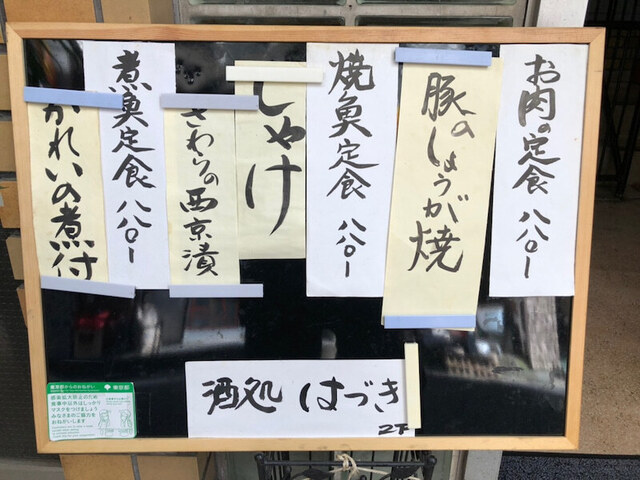 お肉の定食 八八〇ー
豚のしょうが焼
焼魚定食 八八〇ー
しゃけ
さわらの西京漬
煮魚定食 八八〇ー
かれいの煮付
酒処 はづき
2F
東京都